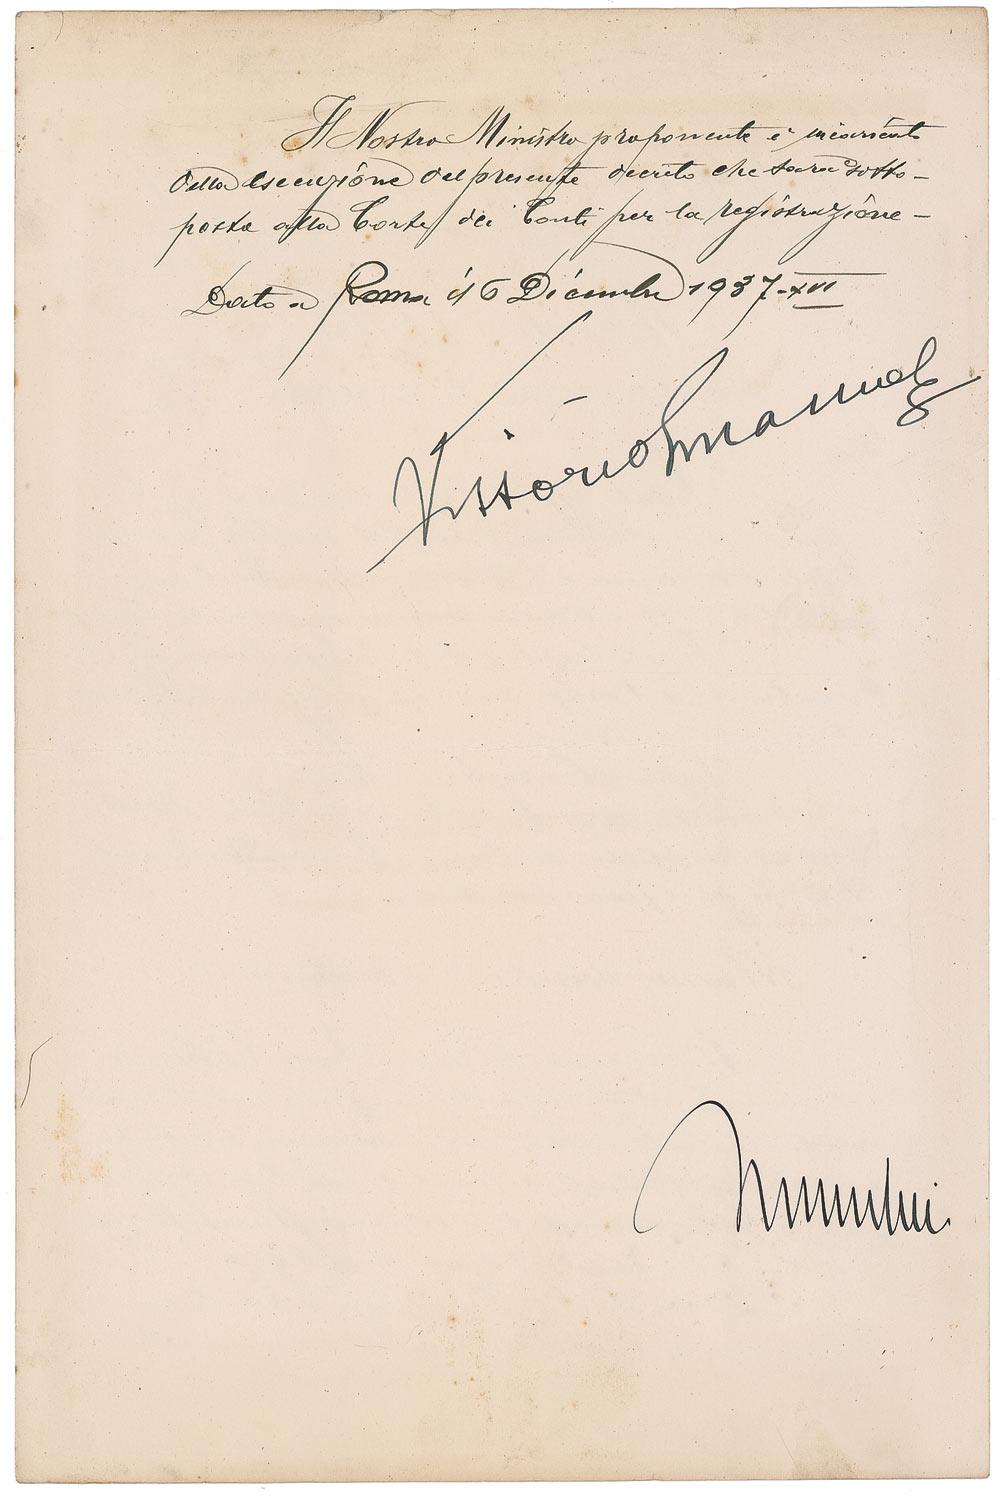 Il Nostro Ministro proponente è incaricato
della esecuzione del presente decreto che sarà sotto-
posto alla Corte dei Conti per la registrazione -
Dato a Roma il 6 Dicembre 1937-XVI
Vittorio Emanuele
Mussolini